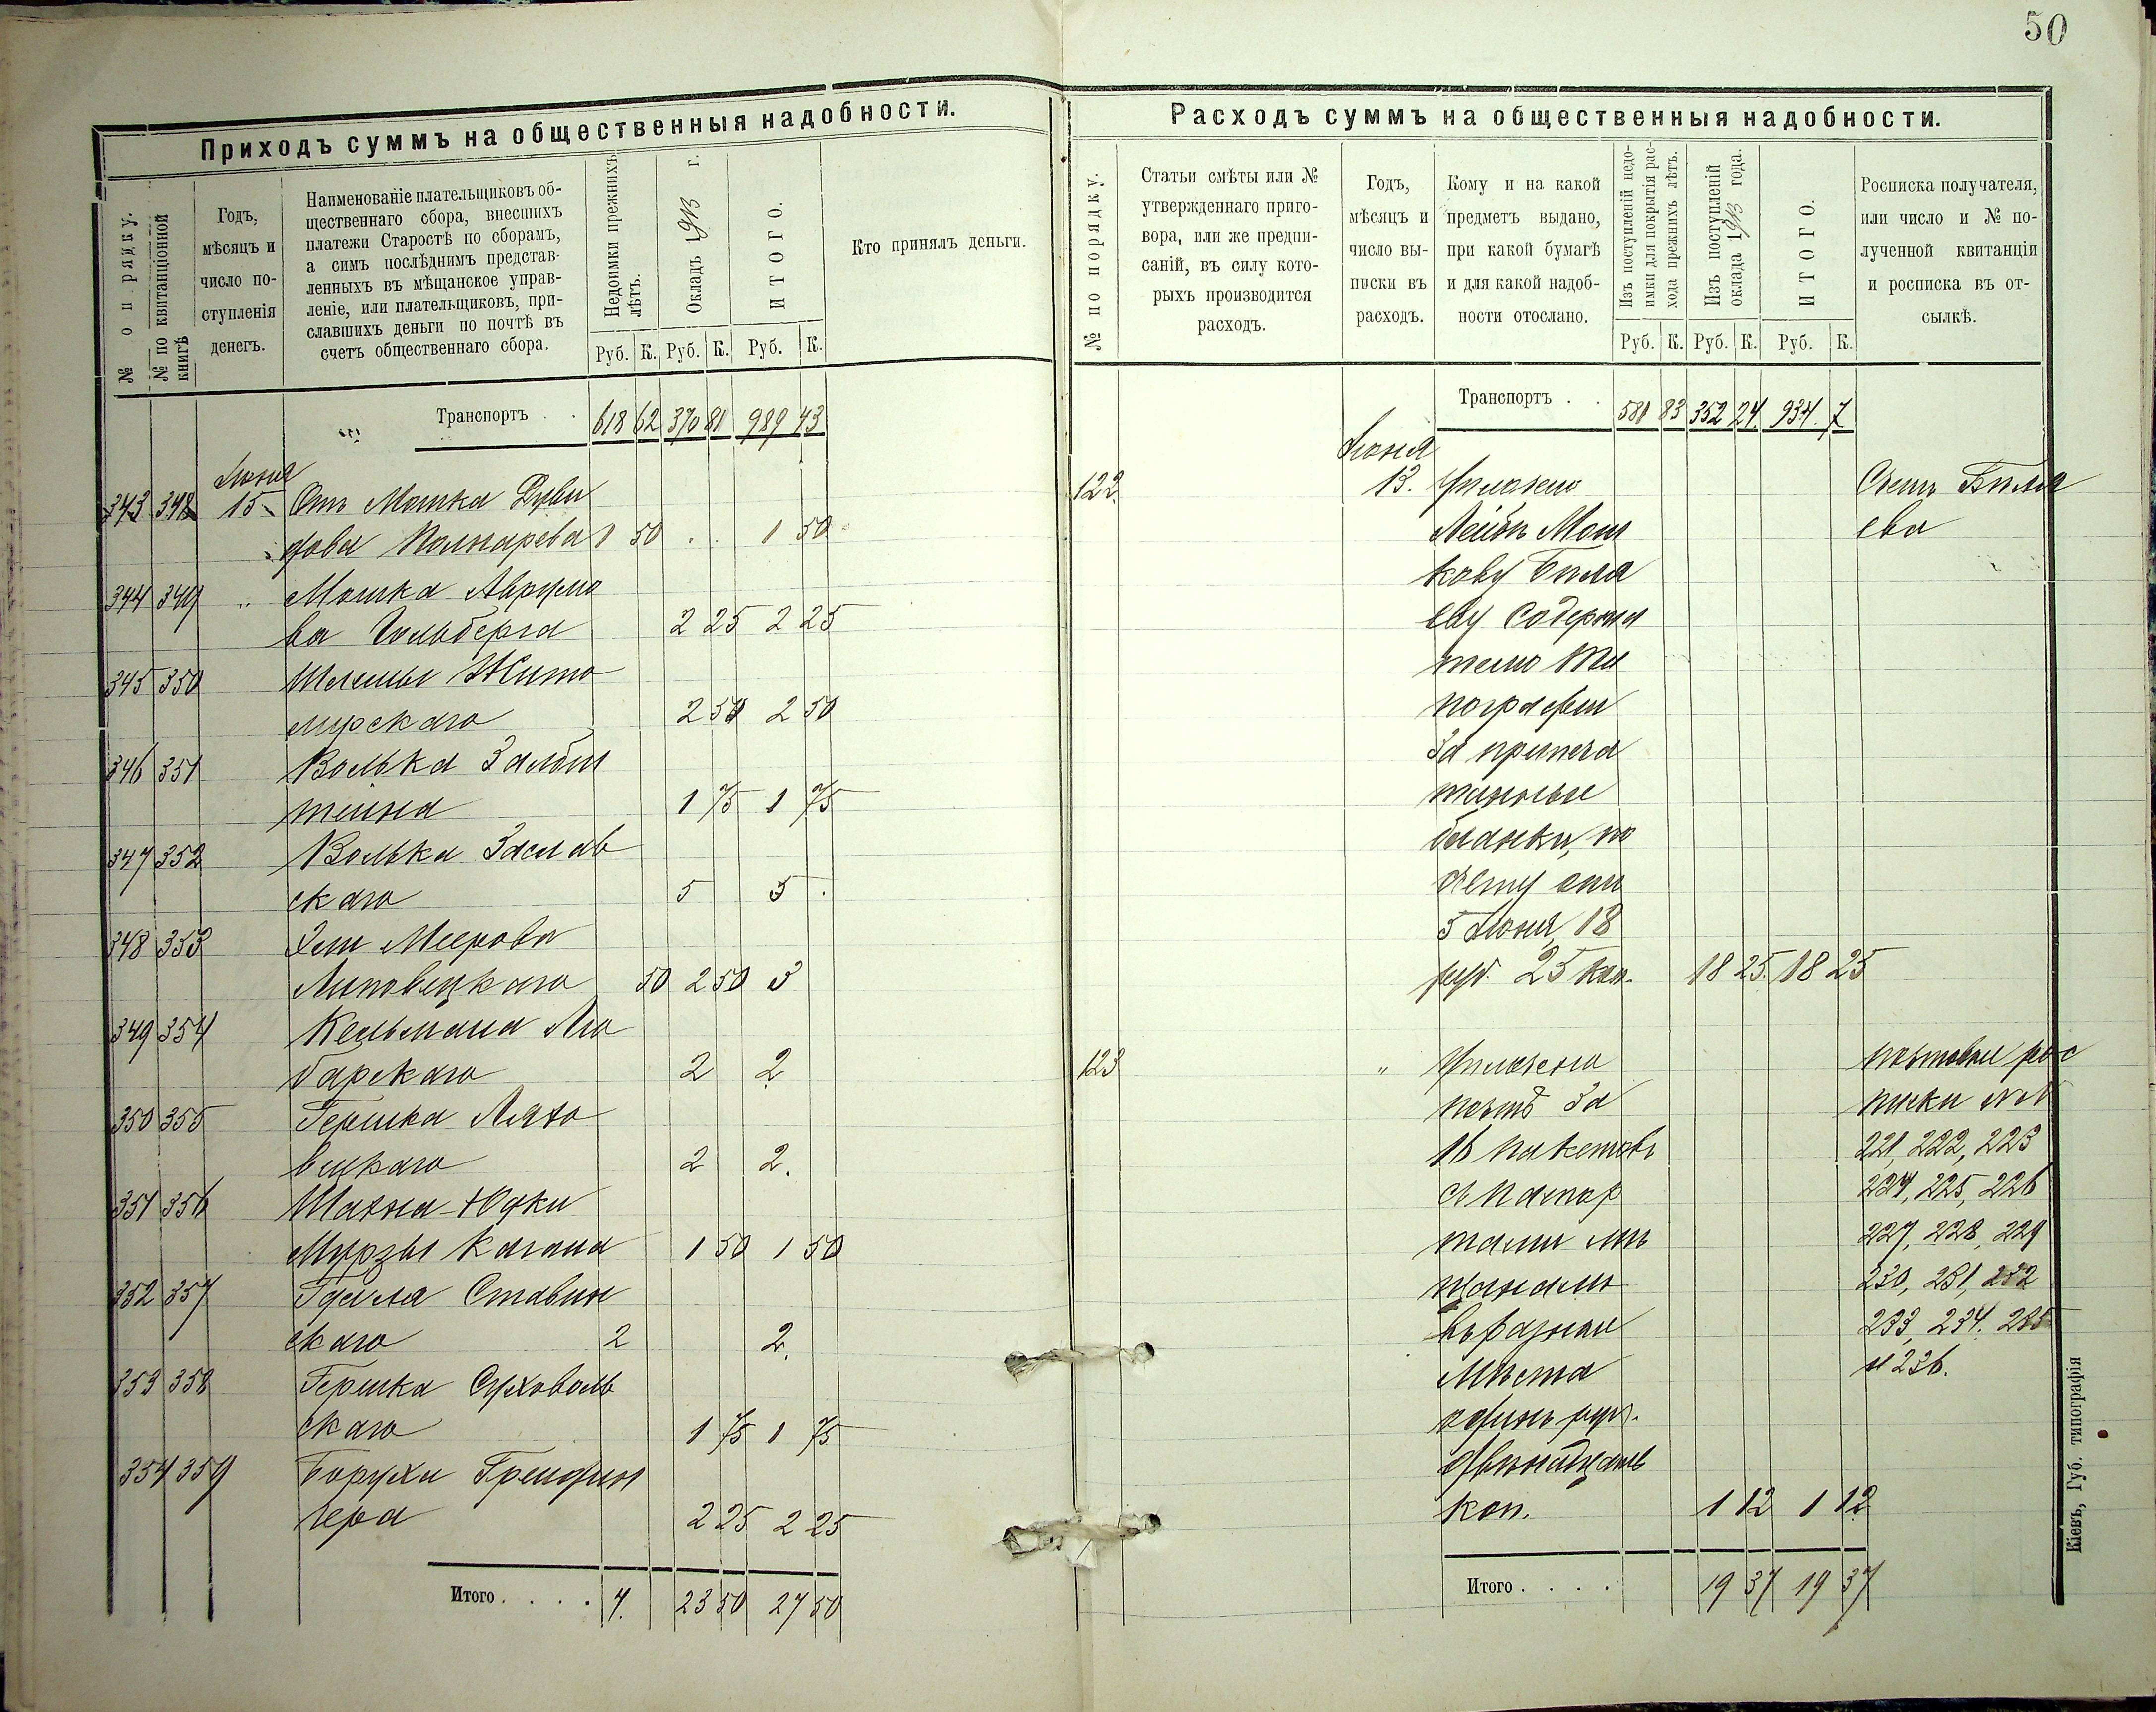 50
Приходъ суммъ на общественныя надобности.
№ по порядку.
№ по квитанціонной книгѣ
Годъ,
мѣсяцъ и
число по-
ступленія
денегъ.
Наименованіе плательщиковъ об-
щественнаго сбора, внесшихъ
платежи Старостѣ по сборамъ,
а симъ послѣднимъ представ-
ленныхъ въ мѣщанское управ-
леніе, или плательщиковъ, при-
славшихъ деньги по почтѣ въ
счетъ общественнаго сбора.
Недоимки прежнихъ лѣтъ.
Окладъ 1913 г.
ИТОГО.
Кто принялъ деньги.
Руб. К. Руб. К. Руб. К.
Транспортъ . . 618 62 370 81 989 43
Июня
343 348 15 Отъ Мошка Дуви
дова Полнарева 1 50 . . 1 50
344 349 " Мошка Аврумо
ва Гольберга 2 25 2 25
345 350 Шлемы Жито
мирскаго 2 50 2 50
346 351 Волька Залбш
тейна 1 75 1 75
347 352 Волька Заслав
скаго 5 5.
348 353 Хаи Меерова
Липовецкаго 50 2 50 3
349 354 Кельмана Лю
барскаго 2 2
350 355 Гершка Ляхо
вецкаго 2 2.
351 356 Шахна-Юдки
Мурзы Кагана 1 50 1 50
352 357 Гдаля Ставин
скаго 2 2.
353 358 Гершка Суховоль
скаго 1 75 1 75
354 359 Боруха Грейдин
гера 2 25 2 25
Итого . . . . 4. 23 50 27 50
Расходъ суммъ на общественныя надобности.
№ по порядку.
Статьи смѣты или №
утвержденнаго приго-
вора, или же предпи-
саній, въ силу кото-
рыхъ производится
расходъ.
Годъ,
мѣсяцъ и
число вы-
писки въ
расходъ.
Кому и на какой
предметъ выдано,
при какой бумагѣ
и для какой надоб-
ности отослано.
Изъ поступленій недо-
имки для покрытія рас-
хода прежнихъ лѣтъ.
Изъ поступленій
оклада 1913 года.
ИТОГО.
Росписка получателя,
или число и № по-
лученной квитанціи
и росписка въ от-
сылкѣ.
Руб. К. Руб. К. Руб. К.
Транспортъ . . 581 83 352 24. 934. 7
Июня
122. 13. Уплачено Счетъ Биля
Лейбѣ Мош ева
кову Биля
еву содержа
телю ти
пографіи
за припеча
танные
бланки, по
счету отъ
5 Июня, 18
руб. 25 коп. 18 25. 18 25
123 " Уплачено почтовыя рос
почтѣ за писки №№
16 пакетовъ 221, 222, 223
съ паспор 224, 225, 226
тами мѣ 227, 228, 229
щанамъ 230, 231, 232
въ разныя 233, 234. 235
мѣста и 236.
одинъ руб.
двѣнадцать
коп. 1 12 1 12
Итого . . . . 19 37 19 37
Кіевъ, Губ. типографія